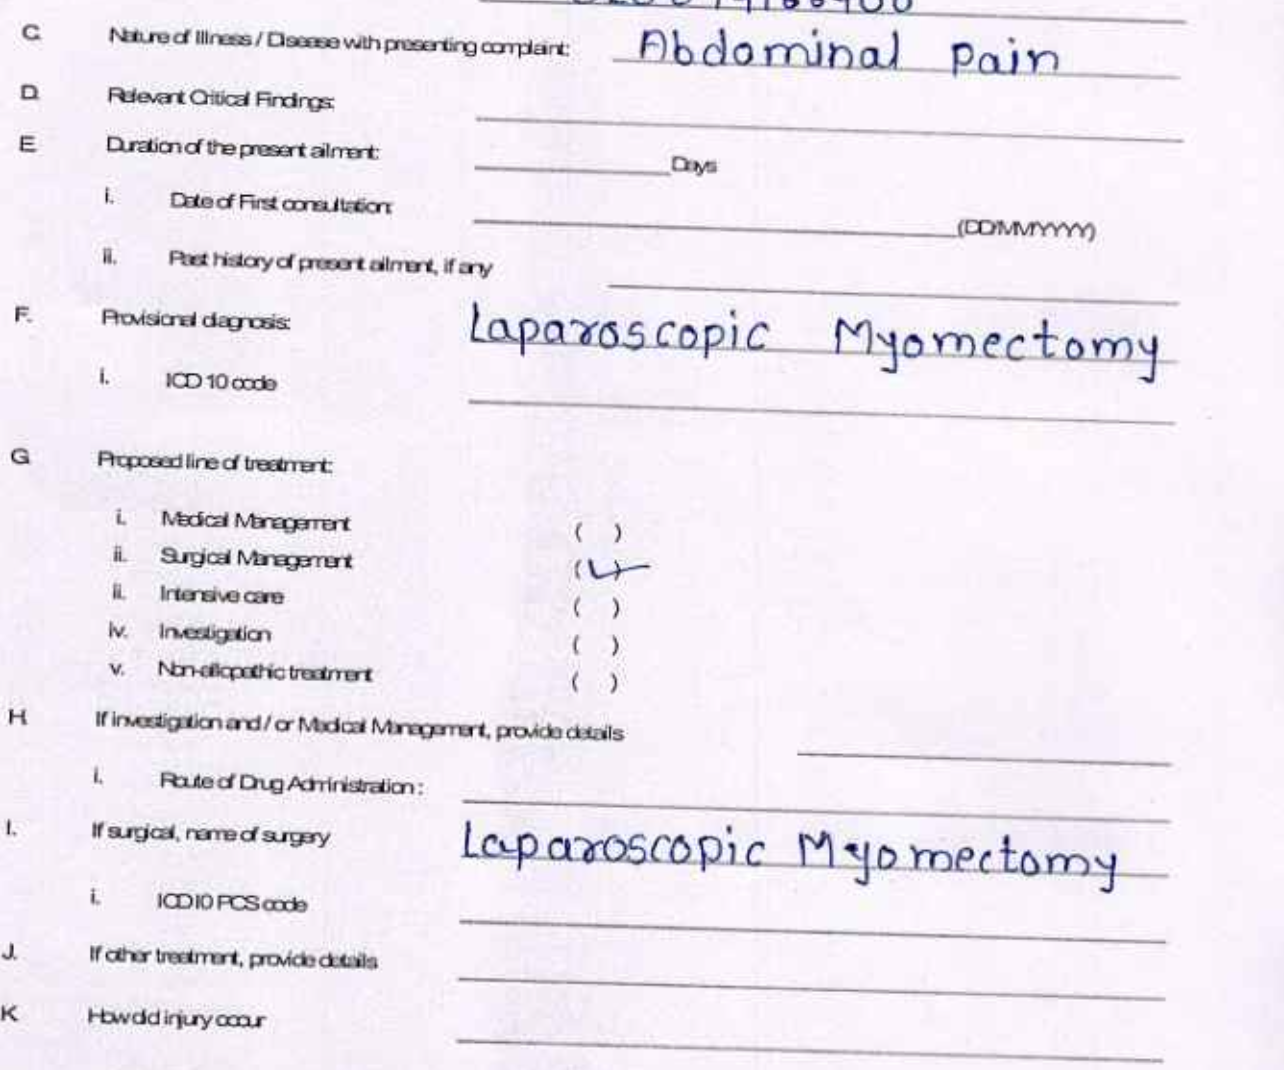 C. Nature of Illness / Disease with presenting complaint: Abdominal Pain
D. Relevant Critical Findings:
E. Duration of the present ailment: Days
i. Date of First consultation: (DD/MM/YYYY)
ii. Past history of present ailment, if any
F. Provisional diagnosis: Laparoscopic Myomectomy
i. ICD 10 code
G. Proposed line of treatment:
i. Medical Management ( )
ii. Surgical Management (✓)
ii. Intensive care ( )
iv. Investigation ( )
v. Non-allopathic treatment ( )
H. If investigation and / or Medical Management, provide details
i. Route of Drug Administration :
I. If surgical, name of surgery Laparoscopic Myomectomy
i. ICD10 PCS code
J. If other treatment, provide details
K. How did injury occur